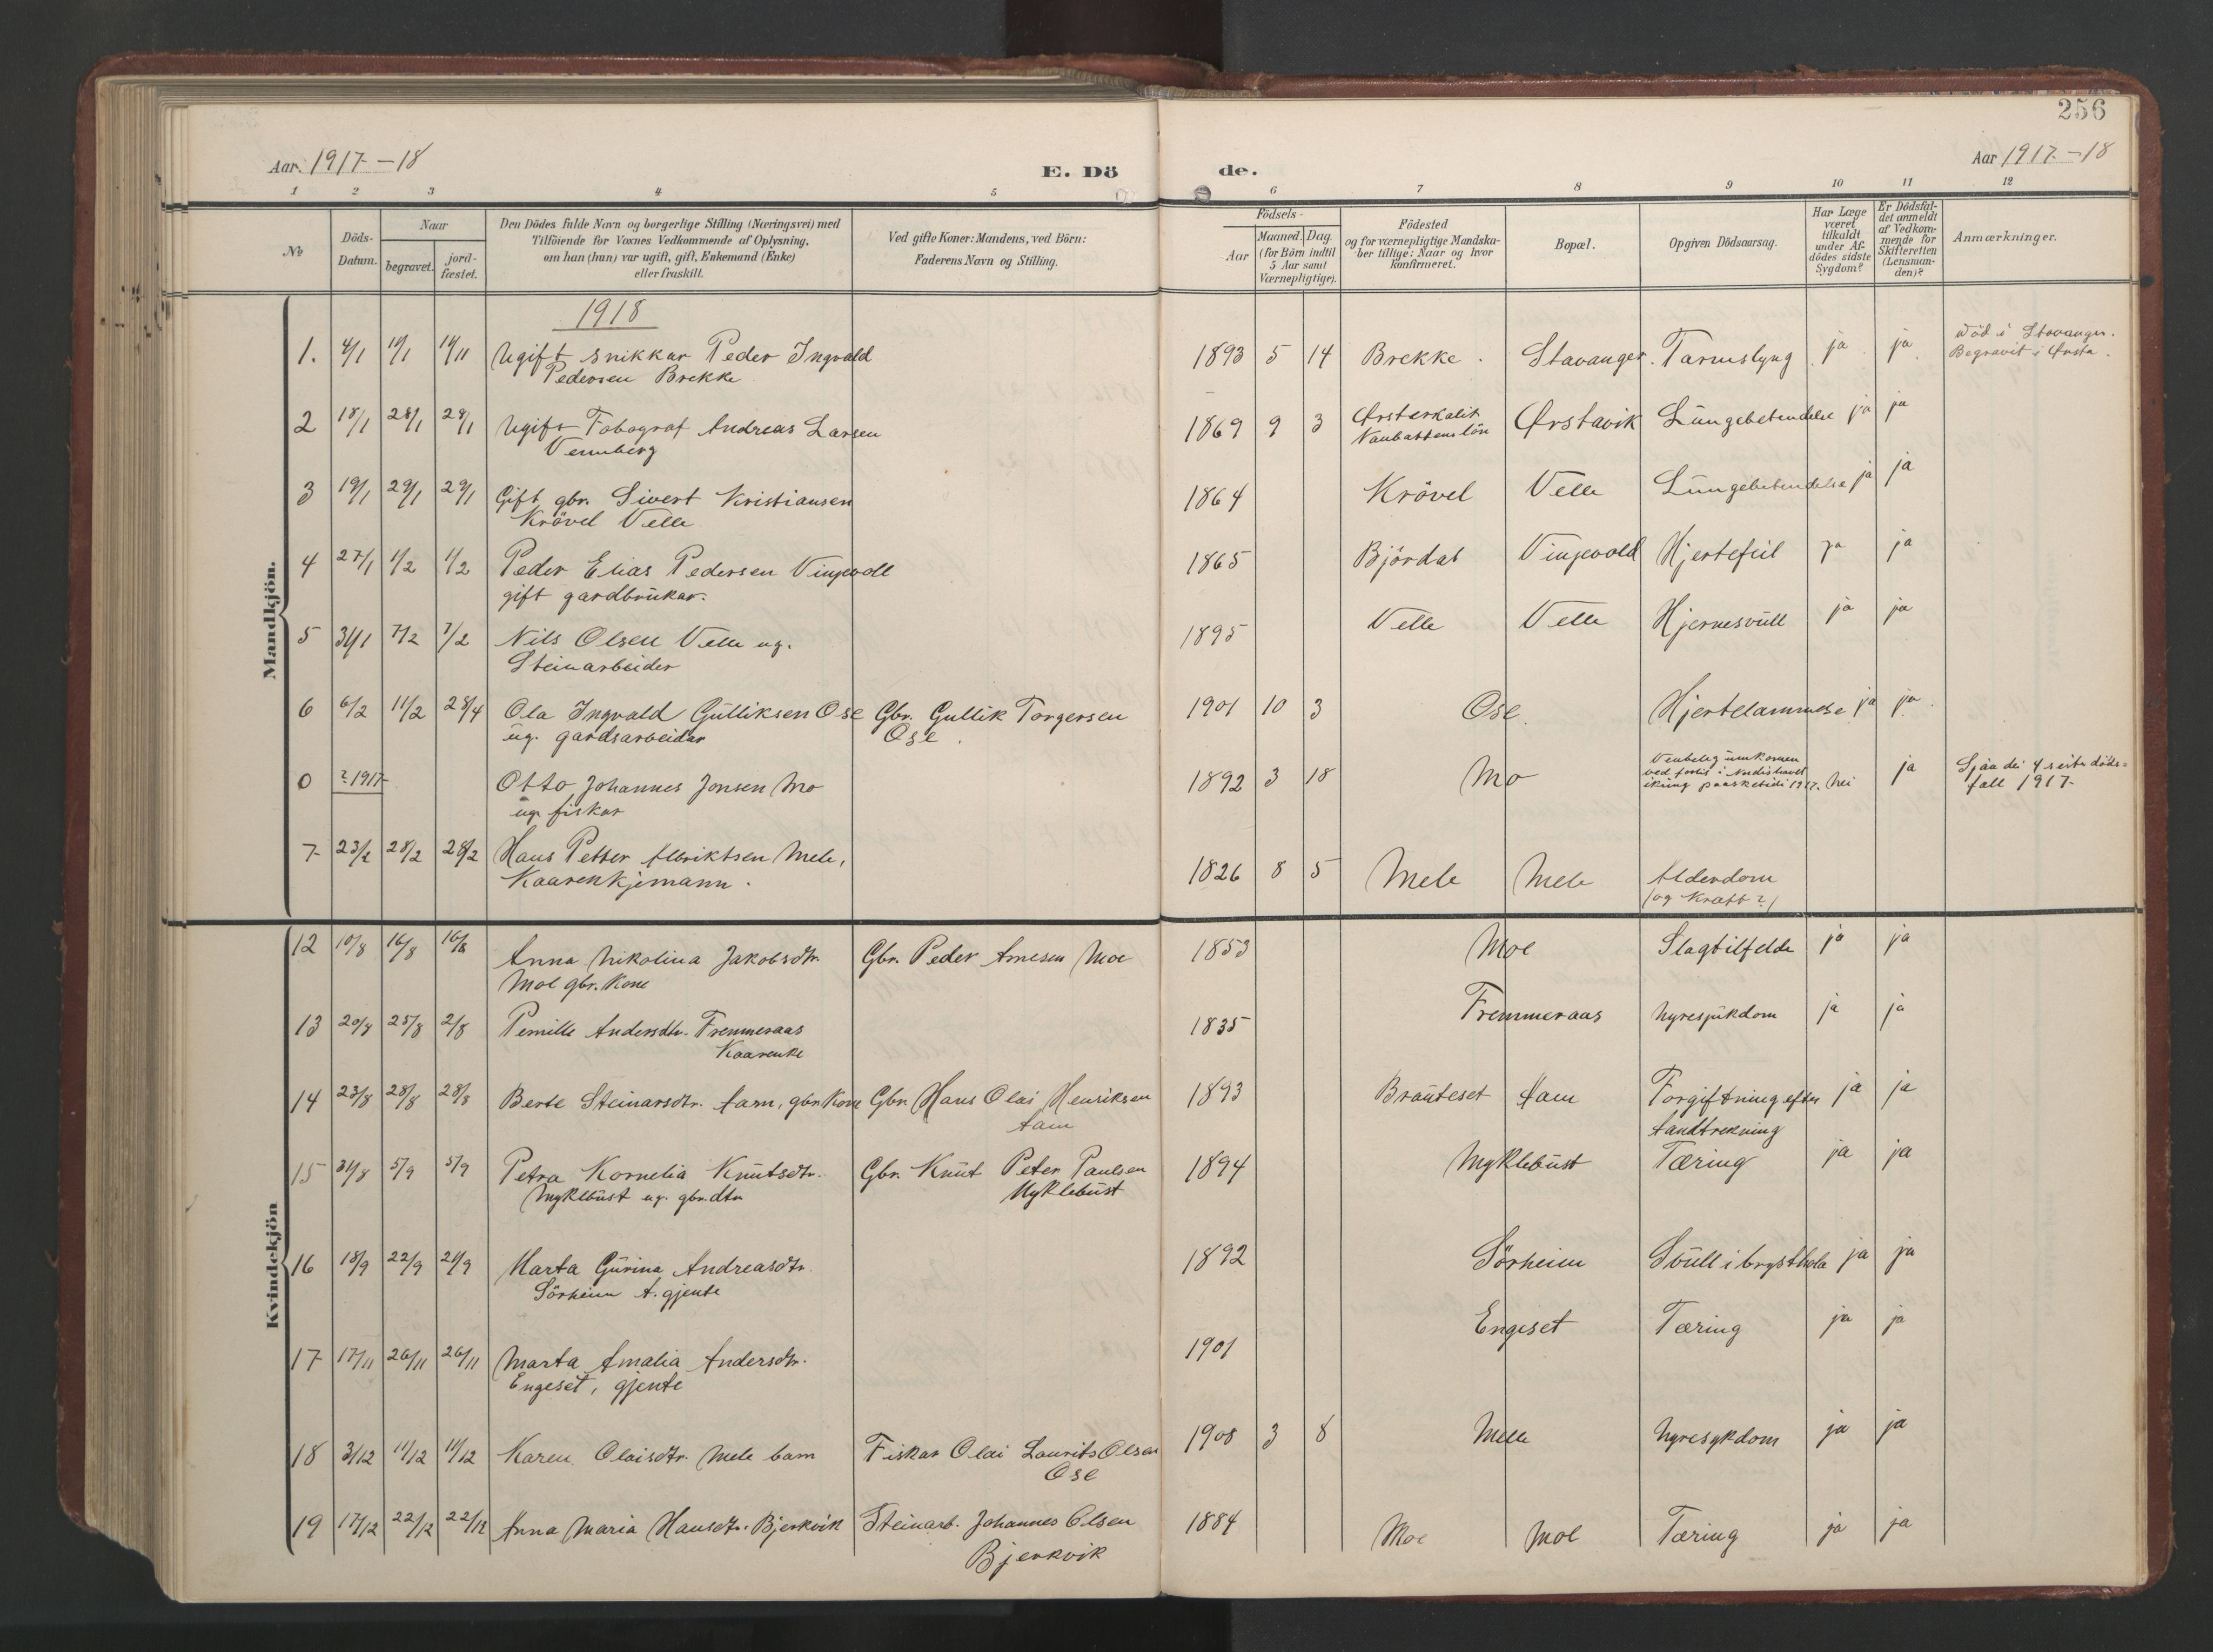 256
Aar 1917-18
E. Dö
de.
Aar 1917-18
1 2 3 4 5 6 7 8 9 10 11 12
No
Döds-
Datum.
Naar
begravet.
jord-
fæstet.
Den Dödes fulde Navn og borgerlige Stilling (Næringsvei) med
Tilföiende for Voxnes Vedkommende af Oplysning,
om han (hun) var ugift, gift, Enkemand (Enke)
eller fraskilt.
Ved gifte Koner: Mandens, ved Börn:
Faderens Navn og Stilling.
Födsels-
Aar
Maaned. Dag.
(for Börn indtil
5 Aar samt
Værnepligtige).
Födested
og for værnepligtige Mandska-
ber tillige: Naar og hvor
konfirmeret.
Bopæl.
Opgiven Dödsaarsag.
Har Læge
været
tilkaldt
under Af-
dödes sidste
Sygdom?
Er Dödsfal-
det anmeldt
af Vedkom-
mende for
Skifteretten
(Lensman-
den)?
Anmærkninger.
Mandkjön.
1918
1. 4/1 19/1 19/1 Ugift snikkar Peder Ingvald 1893 5 14 Brekke. Stavanger. Tarmslyng ja ja Död i Stavanger.
Pedersen Brekke Begravit i Örsta.
2 18/1 28/1 28/1 Ugift Fotograf Andreas Larsen 1869 9 3 Ørstavik Lüngebetendelse ja ja
Vennberg
3 19/1 29/1 29/1 Gift gbr. Sivert Kristiansen 1864 Krövel Velle Lüngebetendelse ja ja
Krövel Velle
4 27/1 1/2 1/2 Peder Elias Pedersen Vinjevoll 1865 Björdal Vinjevold Hjertefeil ja ja
gift gardbrükar.
5 31/1 7/2 7/2 Nils Olsen Velle ug. 1895 Velle Velle Hjernesvüll ja ja
Steinarbeider
6 6/2 11/2 28/4 Ola Ingvald Gülliksen Ose Gbr. Gullik Torgersen 1901 10 3 Ose Hjertelammelse ja ja
ug. gardsarbeidar Ose.
0 ? 1917 Otto Johannes Jonsen Mo 1892 3 18 Mo nei ja Sjaa dei 4 siste döds=
ug. fiskar fall 1917
7 23/2 28/2 28/2 Hans Petter Albriktsen Mele, 1826 8 5 Mele Mele Alderdom
Kaarenkjemann. (og Kräft?)
Kvindekjön
12 10/8 16/8 16/8 Anna Nikolina Jakobsdtr. Gbr. Peder Arnesen Moe 1853 Moe Slagtilfelde ja ja
Moe gbr. Kone
13 20/8 25/8 2/8 Pernille Andersdtr. Fremmeraas 1835 Fremmeraas Nyresjükdom ja ja
Kaarenke
14 23/8 28/8 28/8 Berte Steinarsdtr. Aam, gbr. Kone Gbr. Hans Olai Henriksen 1893 Braüteset Aam Forgiftning efter ja ja
Aam tandtrekning
15 31/8 5/9 5/9 Petra Kornelia Knütsdtr. Gbr. Knüt Peter Paulsen 1894 Myklebüst Tæring ja ja
Myklebüst ug. gbr.dtr Myklebüst
16 18/9 22/9 21/9 Marta Gürina Andreasdtr. 1892 Sörheim Svüll i brysthola ja ja
Sörheim t. gjente
17 17/11 26/11 26/11 Marta Amalia Andersdtr. 1901 Engeset Tæring ja ja
Engeset, gjente
18 3/12 11/12 11/12 Karen Olaisdtr. Mele barn Fiskar Olai Laurits Olsen 1908 3 8 Melle Nyresykdom ja ja
Ose
19 17/12 22/12 22/12 Anna Maria Hansdtr. Bjerkvik Steinarb. Johannes Olsen 1884 Moe Moe Tæring ja ja
Bjerkvik